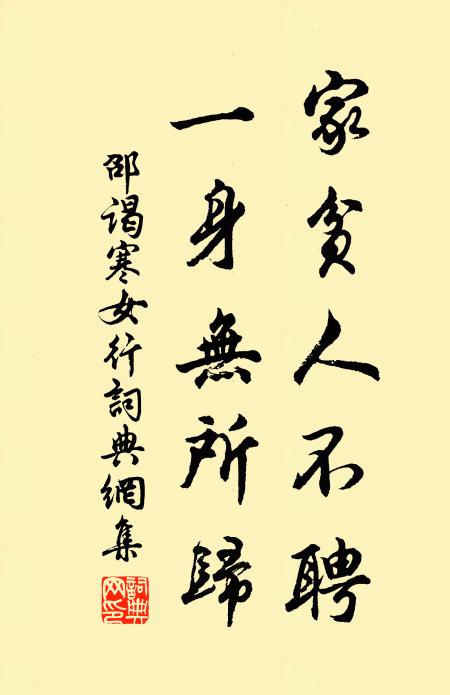 家貧人不聘
一身無所歸
邵謁寒女行詞典網集
詞典
网印